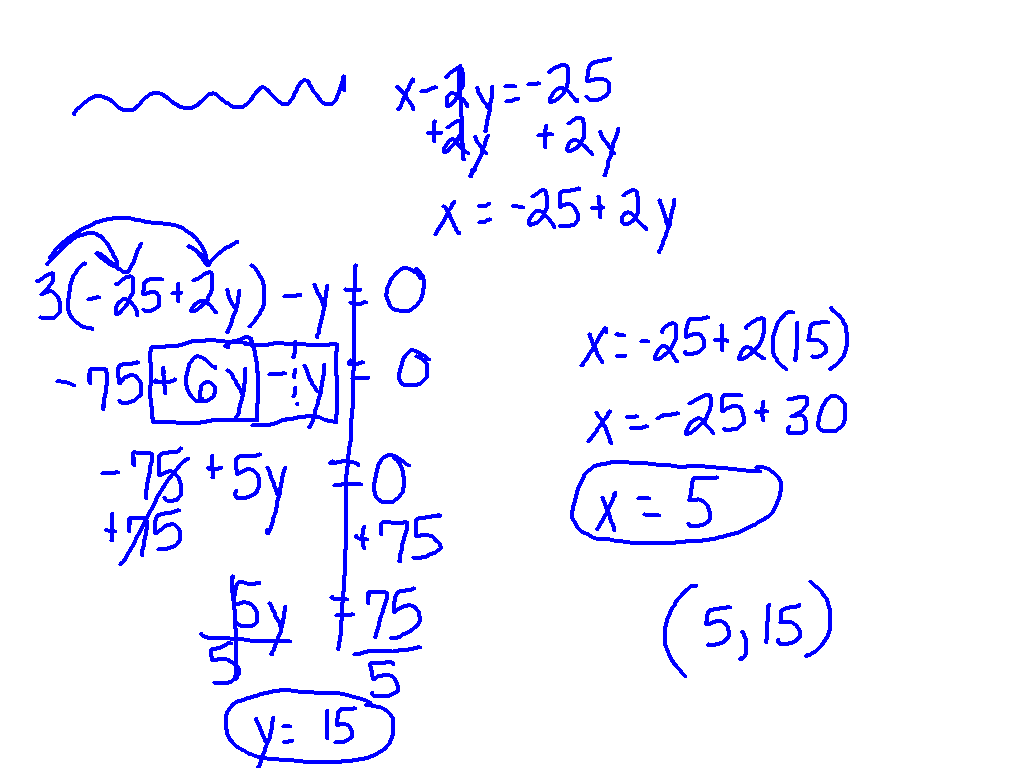 x-2y=-25
+2y +2y
x=-25+2y
3(-25+2y)-y=0
-75+6y-1y=0
-75+5y=0
+75 +75
5y=75
5 5
y=15
x=-25+2(15)
x=-25+30
x=5
(5,15)